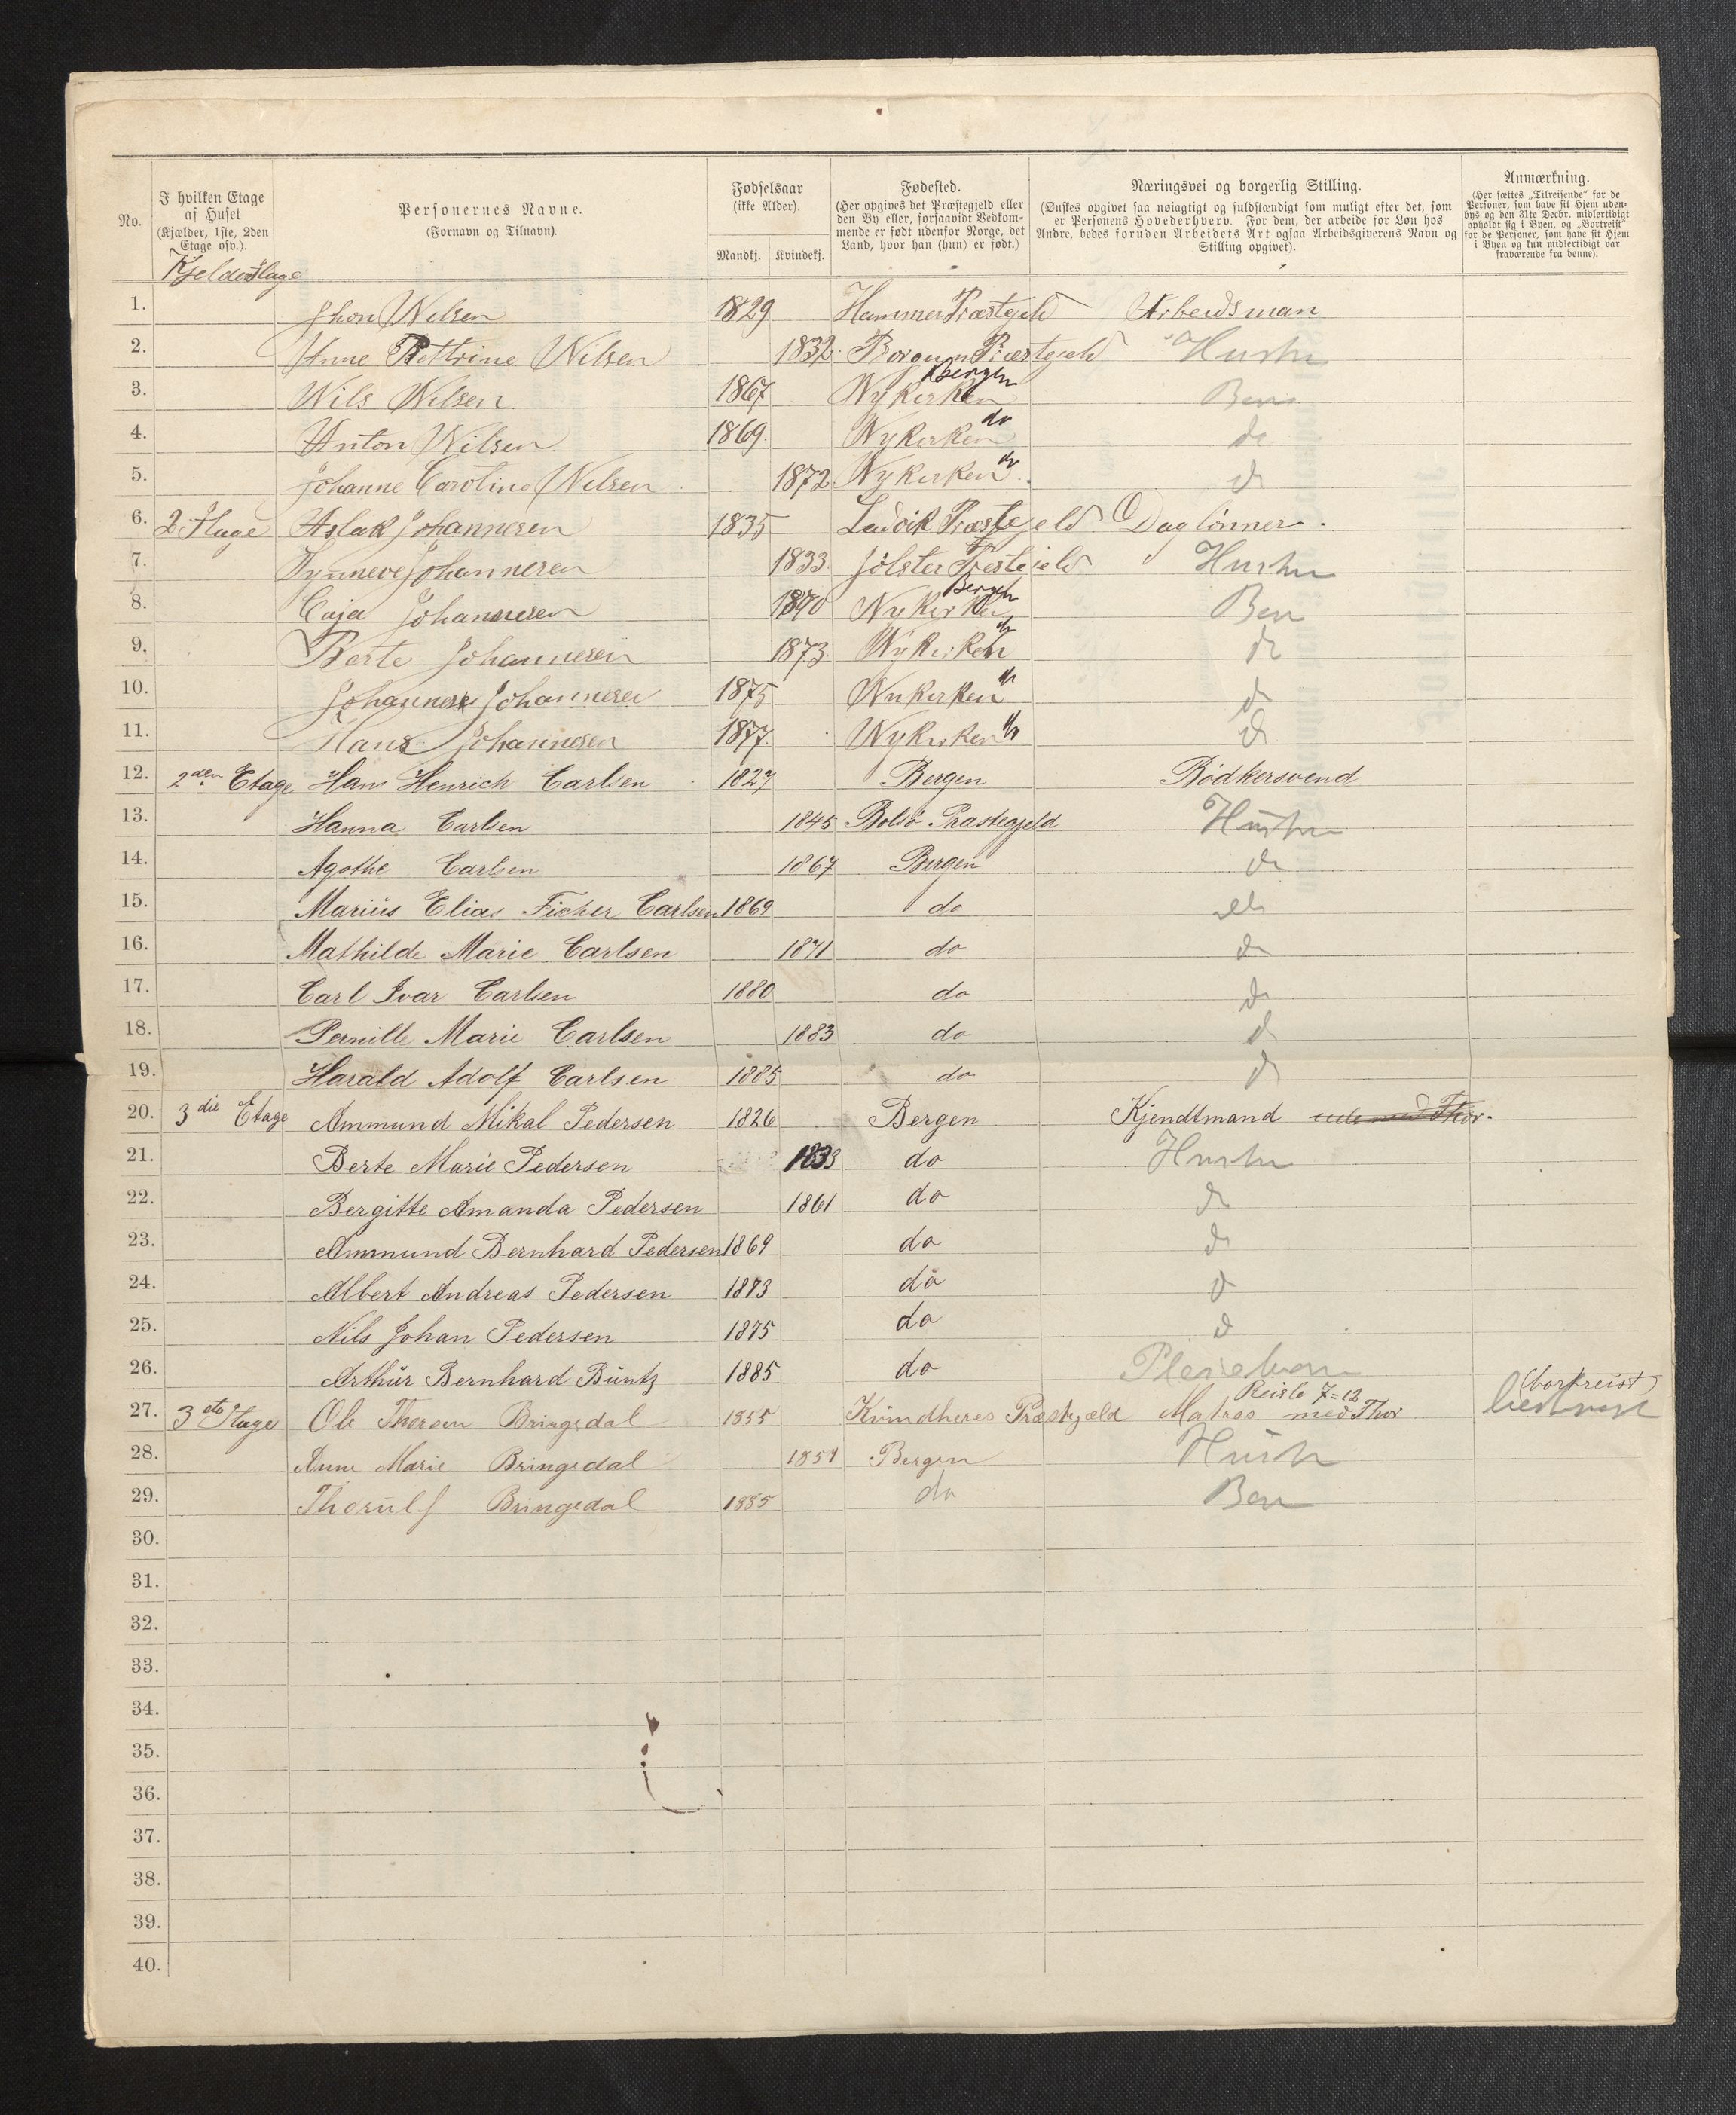 No. I hvilken Etage af Huset (Kjælder, 1ste, 2den Etage osv.). Personernes Navne. (Fornavn og Tilnavn). Fødselsaar (ikke Alder). Mandkj. Kvindekj. Fødested. (Her opgives det Præstegjeld eller den By eller, forsaavidt Vedkommende er født udenfor Norge, det Land, hvor han (hun) er født.) Næringsvei og borgerlig Stilling. (Ønskes opgivet saa nøiagtigt og fuldstændigt som muligt efter det, som er Personens Hovederhverv. For dem, der arbeide for Løn hos Andre, bedes foruden Arbeidets Art ogsaa Arbeidsgiverens Navn og Stilling opgivet). Anmærkning. (Her sættes „Tilreisende" for de Personer, som have sit Hjem udenbys og den 31te Decbr. midlertidigt opholdt sig i Byen, og „Bortreist" for de Personer, som have sit Hjem i Byen og kun midlertidigt var fraværende fra denne).
Kjelder Etage
1. Jhon Nilsen 1829 Hammer Præstegeld Arbeidsman
2. Anne Bettrine Nilsen 1832 Borgun Præstegeld Hustru
3. Nils Nilsen 1867 Nykirken Bergen Barn
4. Anton Nilsen 1869. Nykirken do do
5. Johanne Caroline Nilsen 1872 Nykirken do do
6. 2 Etage Aslak Johannesen 1835 Ladvik Præstegjeld Daglønner.
7. Synneve Johannesen 1833. Jølster Prestegjeld Hustru
8. Caja Johannesen 1870 Nykirken Bergen Barn
9. Berte Johannesen 1873. Nykirken do do
10. Johannes Johannesen 1875 Nykirken do do
11. Hans Johannesen 1877. Nykirken do do
12. 2den Etage Hans Henrich Carlsen 1827 Bergen Bødkersvend
13. Hanna Carlsen 1845 Bolsø Prastegjeld Hustru
14. Agothe Carlsen 1867 Bergen do
15. Marius Elias Fischer Carlsen 1869 do do
16. Mathilde Marie Carlsen 1871 do do
17. Carl Ivar Carlsen 1880 do do
18. Pernille Marie Carlsen 1883 do do
19. Harald Adolf Carlsen 1885 do do
20. 3die Etage Ammund Mikal Pedersen 1826 Bergen Kjendtmand ude med Thor.
21. Berte Marie Pedersen 1833 do Hustru
22. Bergitte Amanda Pedersen 1861 do do
23. Ammund Bernhard Pedersen 1869 do do
24. Albert Andreas Pedersen 1873 do do
25. Nils Johan Pedersen 1875 do do
26. Arthur Bernhard Buntz 1885 do Pleiebarn
27. 3 Etage Ole Bringedal 1855 Kvindheres Præstegjæld Matros med Thor Reiste 7-12 (bortreist) bortreist
28. Anne Marie Bringedal 1854 Bergen Hustr
29. Thorulf Bringedal 1885 do Barn
30.
31.
32.
33.
34.
35.
36.
37.
38.
39.
40.